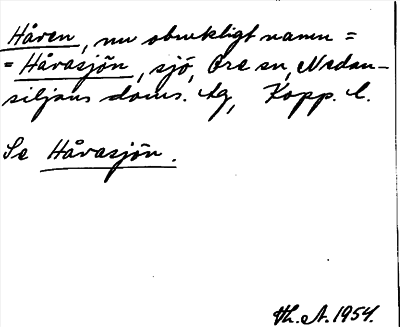 Håren, nu obrukligt namn =
= Håvasjön, sjö, Ore sn, Nedan-
siljans doms. tg, Kopp. l.
Se Håvasjön.
Th. A. 1954.